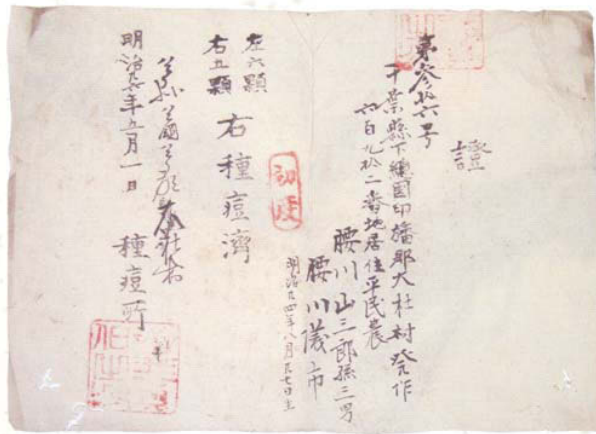 證
第参拾六号
千葉縣下總國印旛郡大杜村発作
六百九拾二番地居住平民農
腰川山三郎孫三男
腰川儀市
明治廿四年八月 日生
初度
左六顆
右五顆
右種痘濟
仝縣仝國仝郡 村
明治廿六年五月一日
種痘所